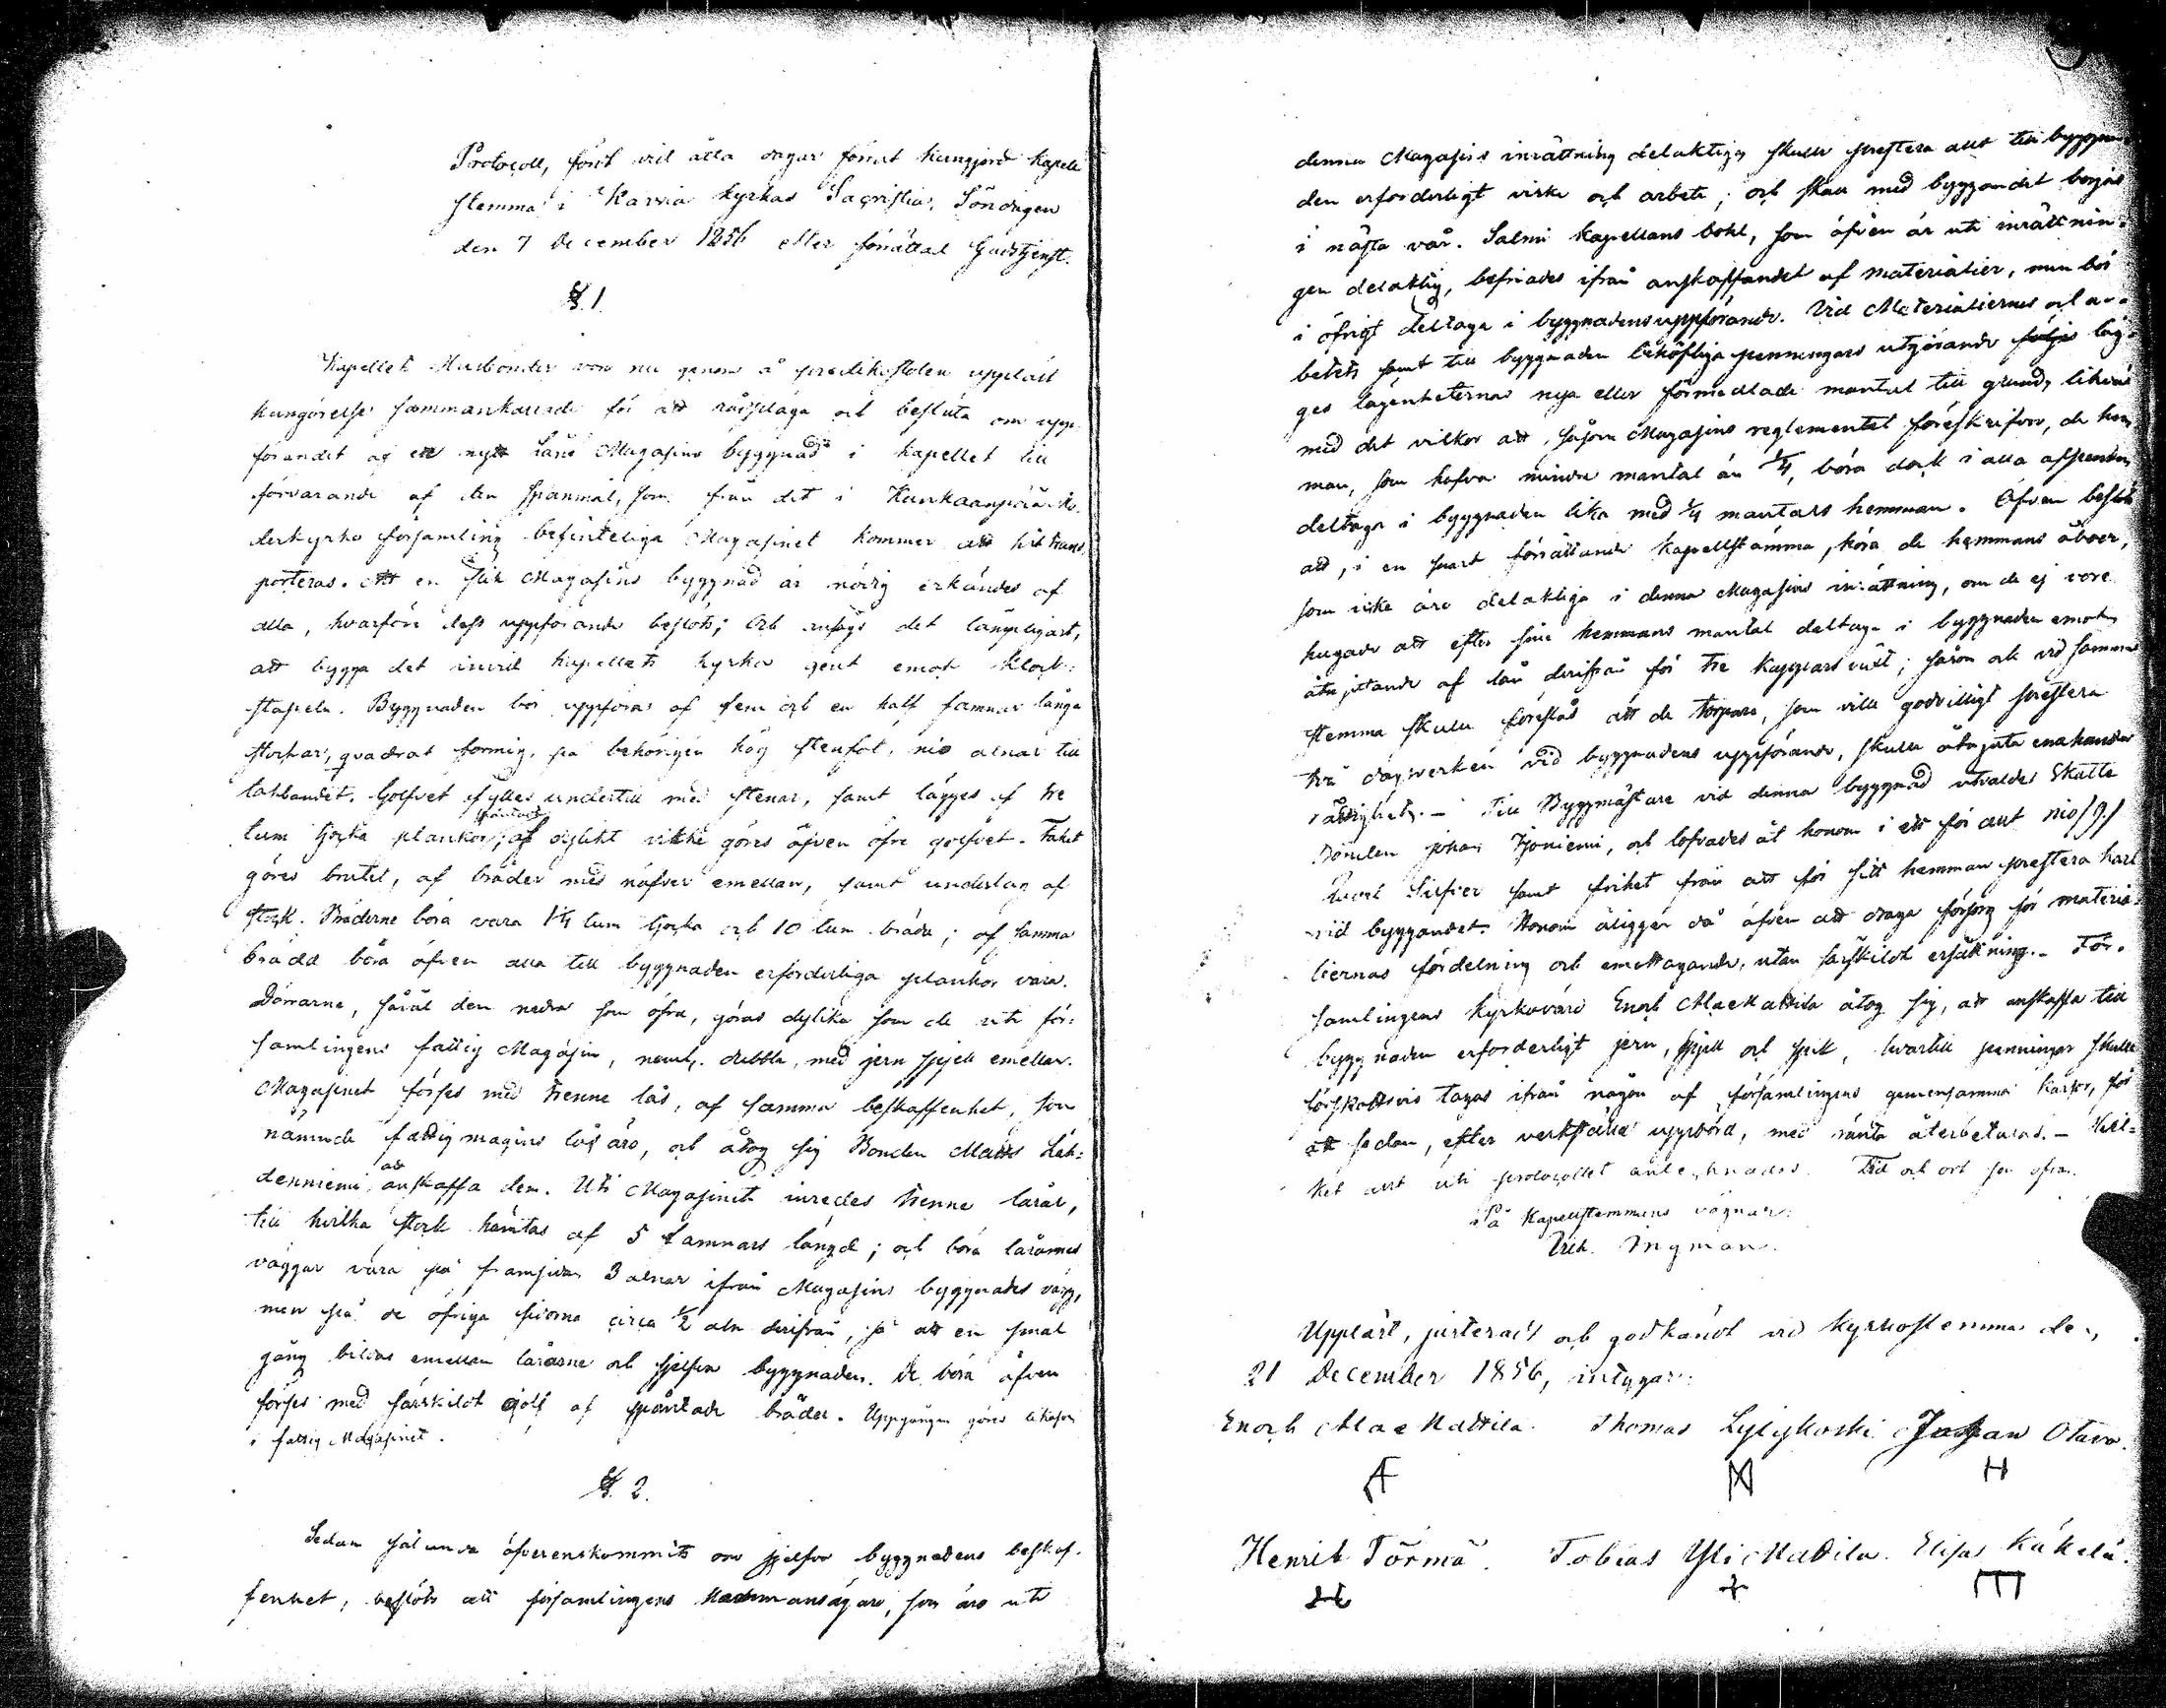 Protocoll, fördt vid åtta dagar förut kungjord kapell
stemma i Karvia kyrkas Sacristia, Söndagen
den 7 December 1856 efter förrättad Gudstjenst.
§. 1.
Kapellets Husbönder voro nu genom å predikstolen uppläst
kungörelse sammankallade för att rådpläga och besluta om upp-
förandet af ett nytt Låne Magasins byggnad i kapellet till
förvarande af den spanmål, som från det i Kankaanpää Mo-
derkyrko församling befinteliga Magasinet kommer att hit trans
porteras. Att en slik Magasins byggnad är nödig erkändes af
alla, hvarföre dess uppförande beslöts; och ansågs det lämpligast,
att bygga det invid kapellets kyrka gent emot klock-
stapeln. Byggnaden bör uppföras af fem och en half famnar långa
stockar, quadrat formig, på behörigen hög stenfot, nio alnar till
takbandet. Golfvet fylles undertill med stenar, samt lägges af tre
tum tjocka plankor, spåntade; af dylikt virke göres äfven öfre golfvet. Taket
göres brutet, af bräder med näfver emellan, samt underlag af
stock. Bräderne böra vara 1 1/4 tum tjocka och 10 tum breda; af samma
bredd böra äfven alla till byggnaden erforderliga plankor vara.
Dörrarne, såväl den nedra som öfra, göras dylika som de uti för-
samlingens fattig Magasin, neml. dubbla, med jern spjell emellan.
Magasinet förses med trenne lås, af samma beskaffenhet, som
nämnde fattig magasins lås äro, och åtog sig Bonden Matts Läh-
denniemi att anskaffa dem. Uti Magasinet inredes trenne lårar,
till hvilka stock hämtas af 5 famnars längd; och böra lårarnes
väggar vara på framsidan 3 alnar ifrån Magasins byggnades vägg,
men på de öfriga sidorna circa 1/2 aln derifrån, så att en smal
gång bildas emellan lårarne och sjelfva byggnaden. De böra äfven
förses med särskildt golf af spåntade bräder. Uppgången göres likasom
i fattig Magasinet.
§. 2.
Sedan sålunda öfverenskommits om sjelfva byggnadens beskaf-
fenhet, beslöts att församlingens Hemmansägare, som äro uti
denna Magasins inrättning delaktige skulle prestera allt till byggna-
den erforderligt virke och arbete; och skall med byggandet börjas
i nästa vår. Salmi kapellans bohl, som äfven är uti inrättnin-
gen delaktig, befriades ifrån anskaffandet af materialier, men bör
i öfrigt deltaga i byggnadens uppförande. Vid Materialiernes och ar-
betets samt till byggnaden behöfliga penningars utgörande läg-
ges lägenheternas nya eller förmedlade mantal till grund, likväl
med det vilkor att, såsom Magasins reglementet föreskrifver, de hem
man, som hafva mindre mantal än 1/4, böra dock i alla afseenden
deltaga i byggnaden lika med 1/4 mantals hemman. Äfven beslöts
att, i en snart förrättande kapellstämma, höra de hemmans åboer,
som icke äro delaktiga i denna Magasins inrättning, om de ej vore
hugade att efter sine hemmans mantal deltaga i byggnaden emot
åtnjutande af lån derifrån för tre kappars växt; såsom och vid samma
stemma skulle föreslås att de torpare, som ville godvilligt prestera
två dagsverken vid byggnadens uppförande, skulle åtnjuta enahanda
rättighet. – Till Byggmästare vid denna byggnad utvaldes Skatte
Bonden Johan Tjoniemi, och lofvades åt honom i ett för allt nio /9./
Rubel Silfver samt frihet från att för sitt hemman prestera karl
vid byggandet. Honom åligger då äfven att draga försorg för materia-
liernas fördelning och emottagande, utan särskildt ersättning. – För-
samlingens kyrkovärd Enoch MacMattila åtog sig, att anskaffa till
byggnaden erforderligt jern, spjell och spik, hvartill penningar skulle
förskottsvis tagas ifrån någon af församlingens gemensamma kassor, för
att sedan, efter verkställd uppbörd, med ränta återbetalas. – Hvil-
ket allt uti protocollet antecknades. Tid och ort som ofvan.
På Kapellstemmans vägnar:
Vilh. Ingman.
Uppläst, justeradt och godkändt vid kyrkostemma den
21 December 1856, intygar:
Enoch MacMattila. Thomas Lylykoski Johan Otava.
Henrik Törmä. Tobias YliMattila. Elias Käkelä.